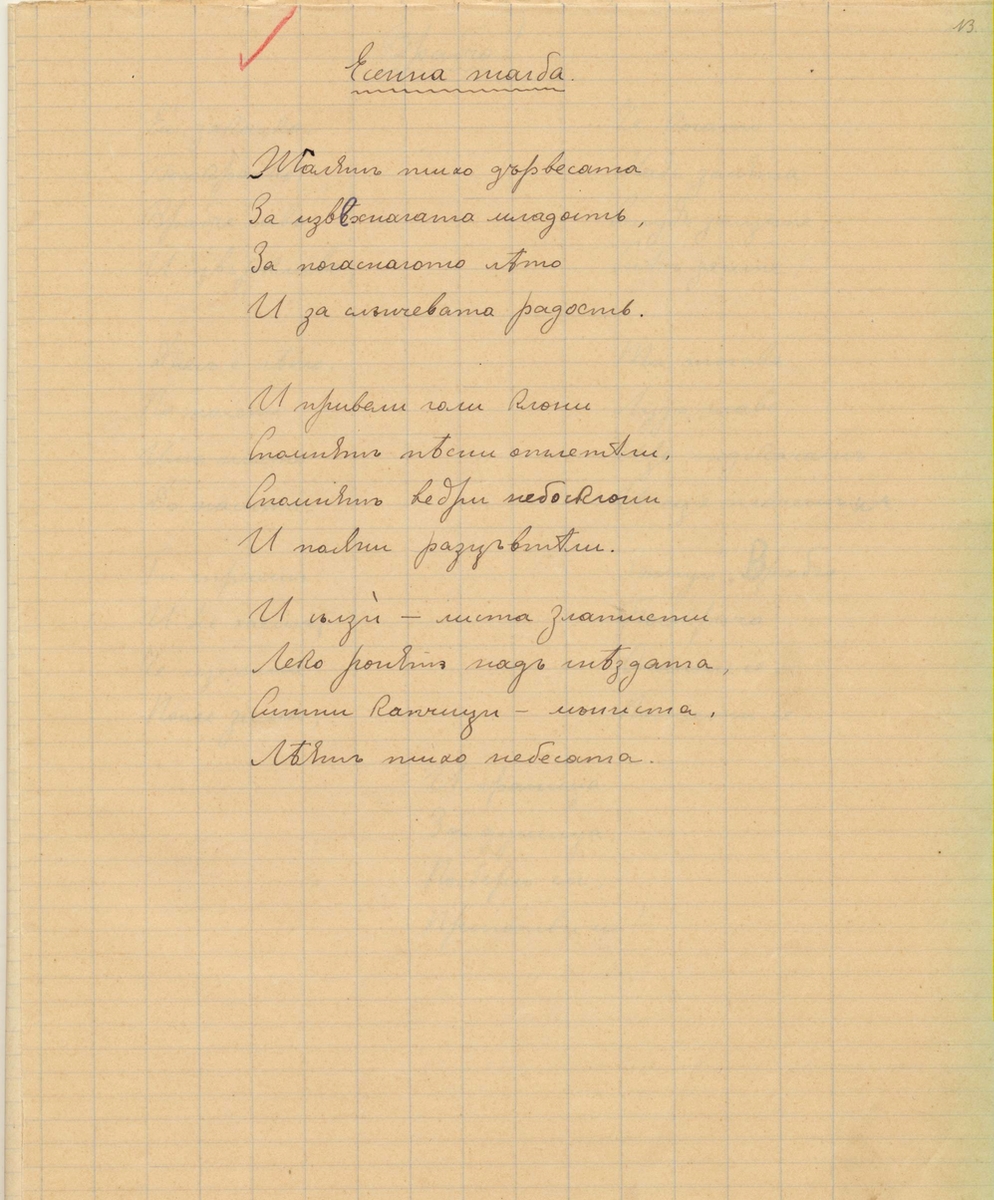 13.
Есенна жалба.
Жалятъ тихо дървесата
За извѣхналата младость,
За погасналото лѣто
И за слънчевата радость.
И привели голи клони
Спомнятъ пѣсни отлетѣли,
Спомнятъ ведри небосклони
И поляни разцъвтѣли.
И сълзѝ – листа златисти
Леко ронятъ надъ гнѣздата,
Ситни капчици – мъниста,
Лѣятъ тихо небесата.